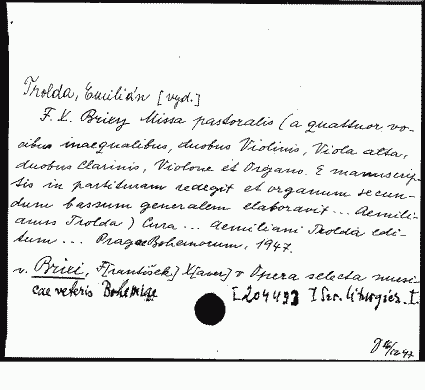 Trolda, Emilián [vyd.]
F. X. Brixy Missa pastoralis (a quattuor vo-
cibus inaequalibus, duobus Violinis, Viola alta,
duobus Clarinis, Violone et Organo. E manuscrip-
tis in partituram redegit et organum secun-
dum bassum generalem elaboravit ... Aemili-
anus Trolda) Cura ... Aemiliani Trolda edi-
tum ... Pragae Bohemorum, 1947.
v. Brixi, F[rantišek] X[aver] v Opera selecta musi-
cae veteris Bohemicae [204493 I Scr. liturgica. I.